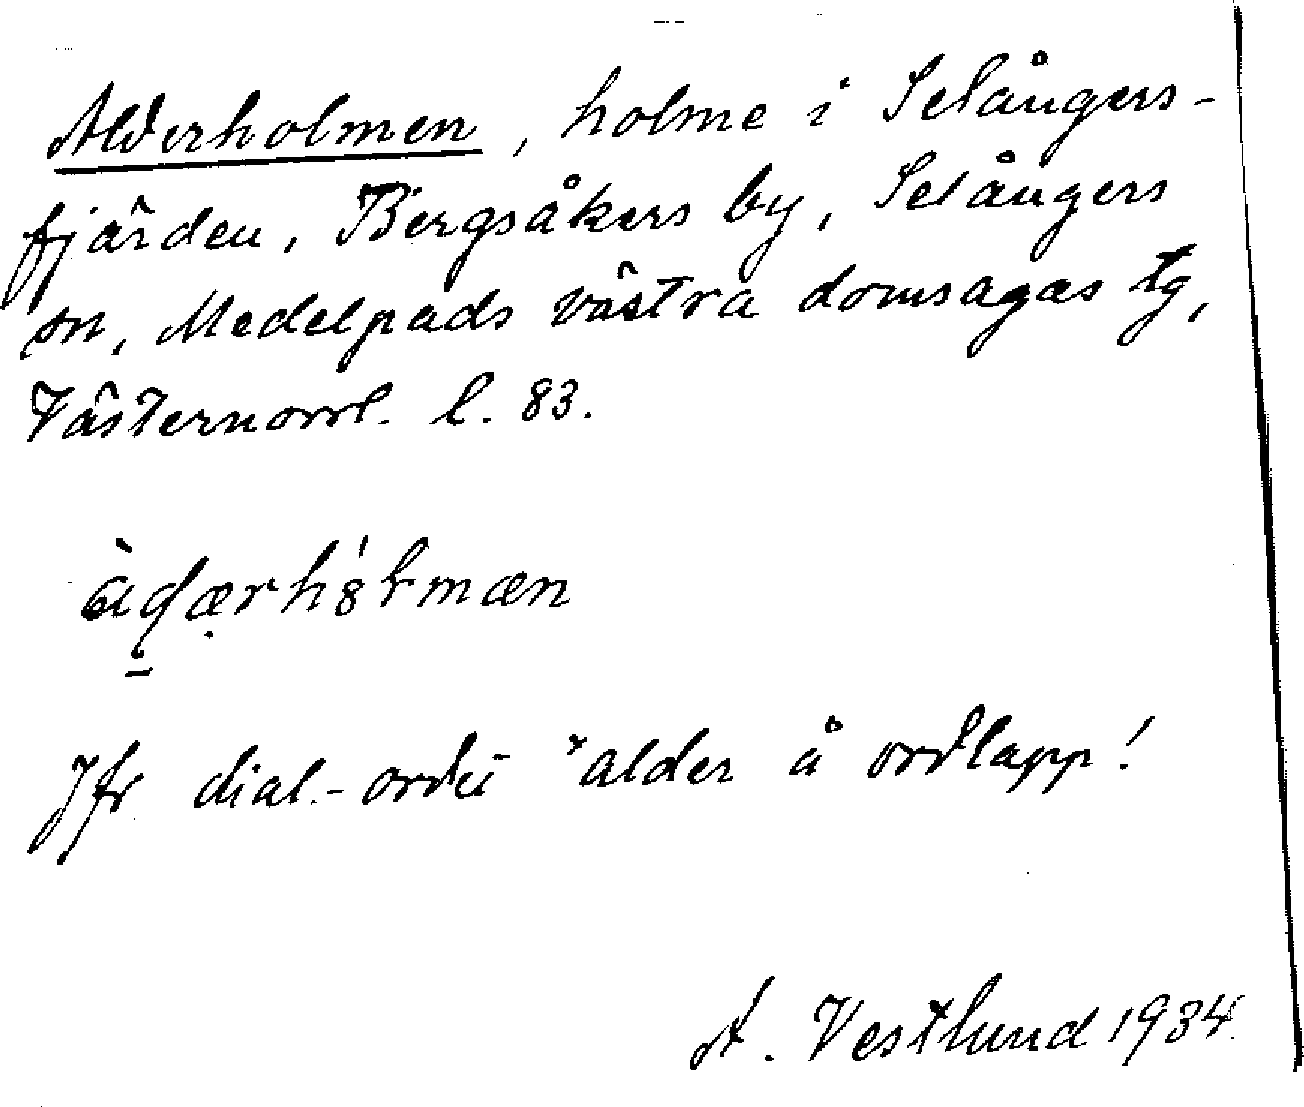 Alderholmen, holme i Selångers-
fjärden, Bergsåkers by, Selångers
sn, Medelpads västra domsagas tg,
Västernorrl. l. 83.
Jfr dial.-ordet *alder å ordlapp!
A. Vestlund 1934.